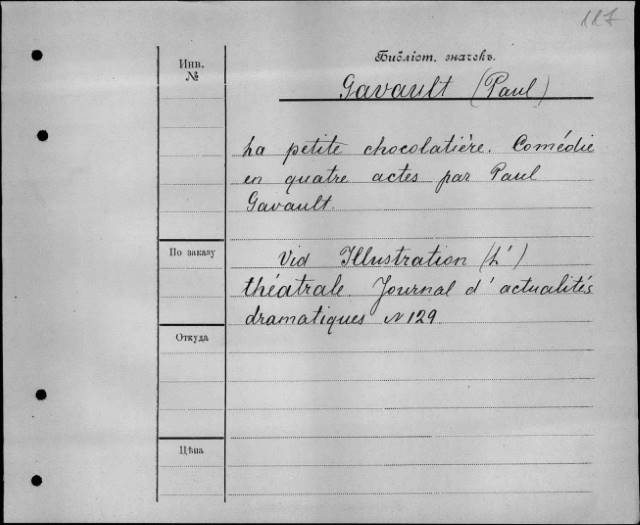 117
Библіот. значекъ.
Инв.
№
Gavault (Paul)
La petite chocolatière. Comédie
en quatre actes par Paul
Gavault.
По заказу
Vid Illustration (L')
théatrale. Journal d'actualités
dramatiques N 129.
Откуда
Цѣна